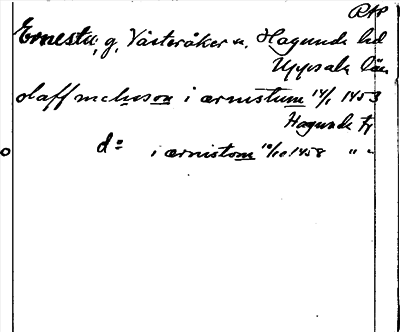 RAP
Ernesta, g, Västeråker sn, Hagunda hd
Uppsala län
olaff mchᵉson i ærnistum 14/1 1453
Hagunda Fj
dº i ærnistom 10/10 1458 " "